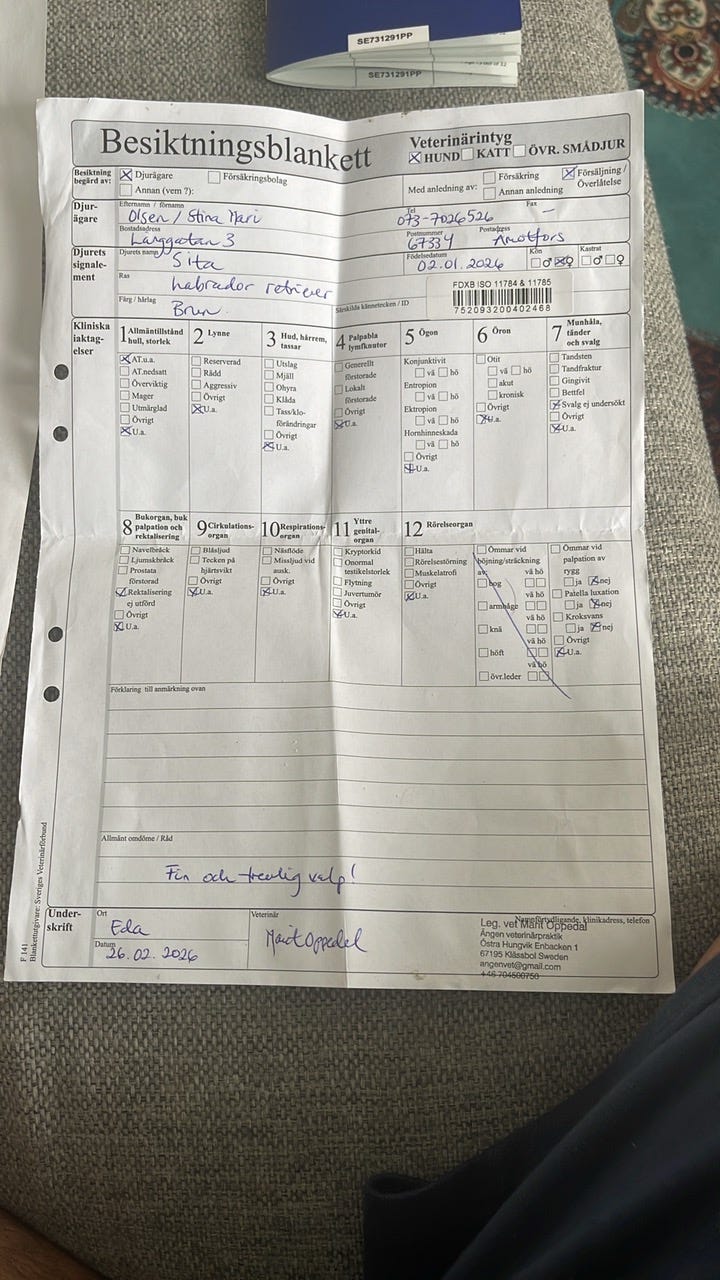 SE731291PP
SE731291PP
Besiktningsblankett
Veterinärintyg
HUND KATT ÖVR. SMÅDJUR
Besiktning begärd av:
Djurägare
Försäkringsbolag
Annan (vem ?):
Med anledning av:
Försäkring
Försäljning / Överlåtelse
Annan anledning
Djur-
ägare
Efternamn / förnamn
Olsen / Stina Mari
Tel
073-7026526
Fax
–
Bostadsadress
Långgatan 3
Postnummer
67334
Postadress
Åmotfors
Djurets
signale-
ment
Djurets namn
Sita
Födelsedatum
02.01.2026
Kön
♂ ♀
Kastrat
♂ ♀
Ras
Labrador retriever
Färg / hårlag
Brun
Särskilda kännetecken / ID
FDXB ISO 11784 & 11785
752093200402468
Kliniska
iaktag-
elser
1 Allmäntillstånd
hull, storlek
AT.u.a.
AT.nedsatt
Överviktig
Mager
Utmärglad
Övrigt
U.a.
2 Lynne
Reserverad
Rädd
Aggressiv
Övrigt
U.a.
3 Hud, hårrem,
tassar
Utslag
Mjäll
Ohyra
Klåda
Tass/klo-
förändringar
Övrigt
U.a.
4 Palpabla
lymfknutor
Generellt
förstorade
Lokalt
förstorade
Övrigt
U.a.
5 Ögon
Konjunktivit
vä hö
Entropion
vä hö
Ektropion
vä hö
Hornhinneskada
vä hö
Övrigt
U.a.
6 Öron
Otit
vä hö
akut
kronisk
Övrigt
U.a.
7 Munhåla,
tänder
och svalg
Tandsten
Tandfraktur
Gingivit
Bettfel
Svalg ej undersökt
Övrigt
U.a.
8 Bukorgan, buk
palpation och
rektalisering
Navelbråck
Ljumskbråck
Prostata
förstorad
Rektalisering
ej utförd
Övrigt
U.a.
9 Cirkulations-
organ
Blåsljud
Tecken på
hjärtsvikt
Övrigt
U.a.
10 Respirations-
organ
Näsflöde
Missljud vid
ausk.
Övrigt
U.a.
11 Yttre
genital-
organ
Kryptorkid
Onormal
testikelstorlek
Flytning
Juvertumör
Övrigt
U.a.
12 Rörelseorgan
Hälta
Rörelsestörning
Muskelatrofi
Övrigt
U.a.
Ömmar vid
böjning/sträckning
av: vä hö
bog
vä hö
armbåge
vä hö
knä
vä hö
höft
vä hö
övr.leder
Ömmar vid
palpation av
rygg
ja nej
Patella luxation
ja nej
Kroksvans
ja nej
Övrigt
U.a.
Förklaring till anmärkning ovan
Allmänt omdöme / Råd
Fin och trevlig valp!
Under-
skrift
Ort
Eda
Datum
26.02.2026
Veterinär
Marit Oppedal
Namnförtydligande, klinikadress, telefon
Leg. vet Marit Oppedal
Ängen veterinärpraktik
Östra Hungvik Enbacken 1
67195 Klässbol Sweden
angenvet@gmail.com
+46 704500750
F 141
Blankettutgivare: Sveriges Veterinärförbund